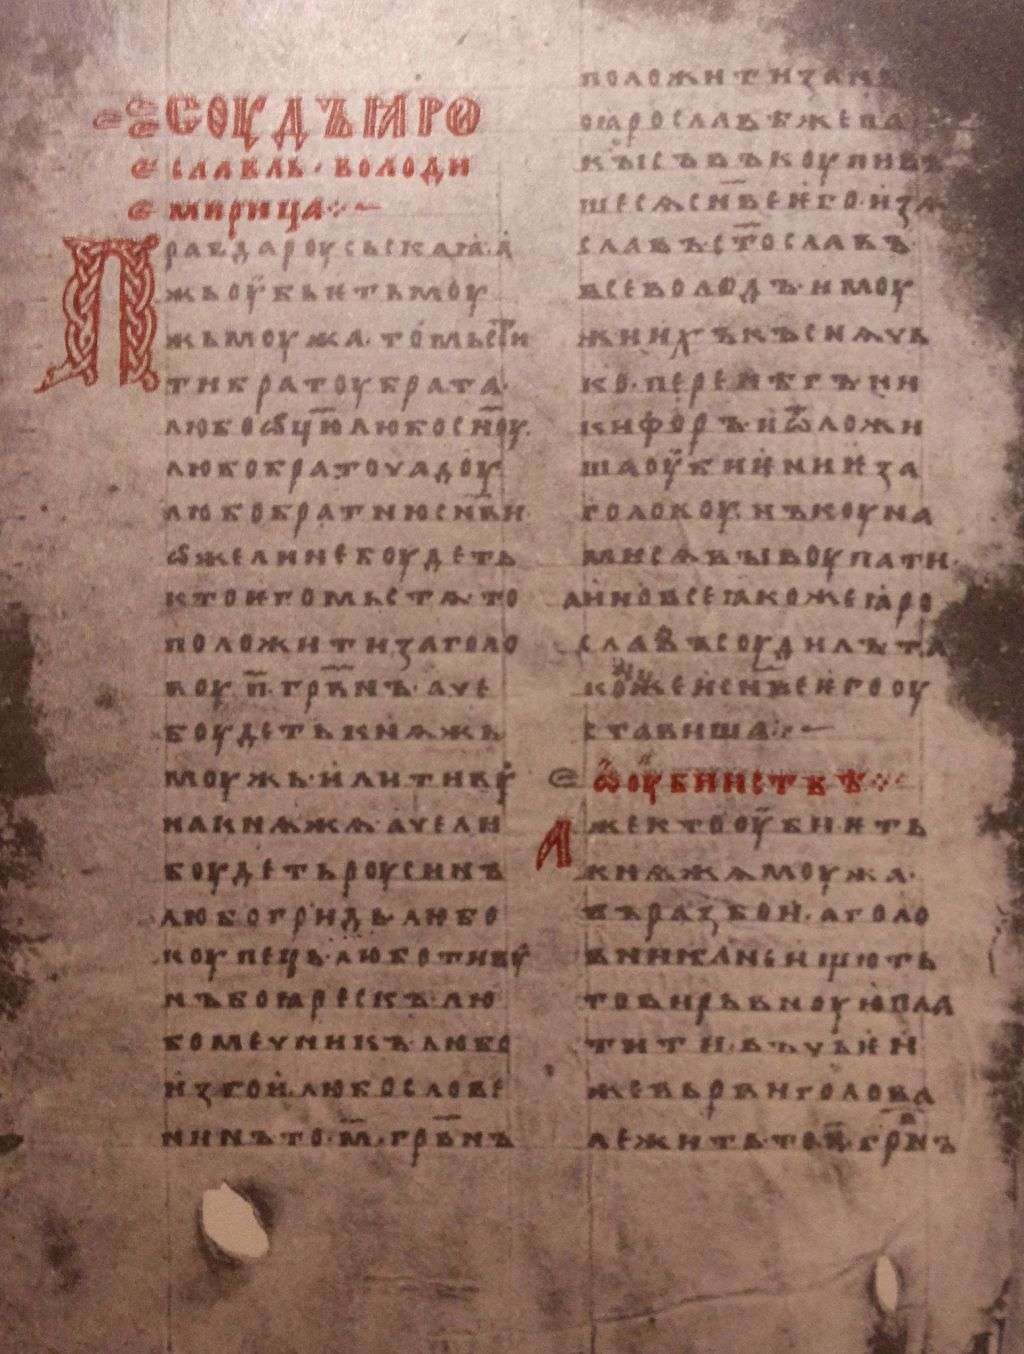 СОУДЪ ꙖРО
СЛАВЛЬ · ВОЛОДИ
МИРИЦА
Правда роусьскаꙗ · а
жь оубьеть моу
жь моужа · то мьстї
ти братоу брата ·
любо ѿцю любо сн҃оу ·
любо братоучадоу
любо братню сн҃ви
ѡже ли не боудеть
кто ѥго мьстѧ то
положити за голо
воу · п҃ · гр҃внъ · аче
боудеть кнѧжь
моужь · или тивоу
на кнѧжѧ · аче ли
боудеть роусинъ
любо гридь · любо
коупець · любо тивоу
нъ боꙗрескъ · лю
бо мечникъ · любо
изгои · любо слове
нинъ то · м҃ · гр҃внъ
положити за нь
по ꙗрославѣ же пакы
съвъкоупивъ
шесѧ сн҃ве ѥго · изѧ
славъ · ст҃ославъ ·
всеволодъ · и моу
жи ихъ къснѧчь
ко · перенѣгъ · ни
кифоръ · и ѿложи
ша оубиѥниѥ за
голову · нъ коуна
ми сѧ выкоупати ·
а ино все ꙗкоже ꙗро
славъ соудилъ та
коже и сн҃ве ѥго оу
ставиша
Ѡ ОУБИИСТВѢ
Аже кто оубиѥть
кнѧжѧ моужа ·
въ разбои · а голо
вника не ищють
то вирьвноую пла
тити · въ чьѥи
же вьрви голова
лежить то п҃ · гр҃внъ